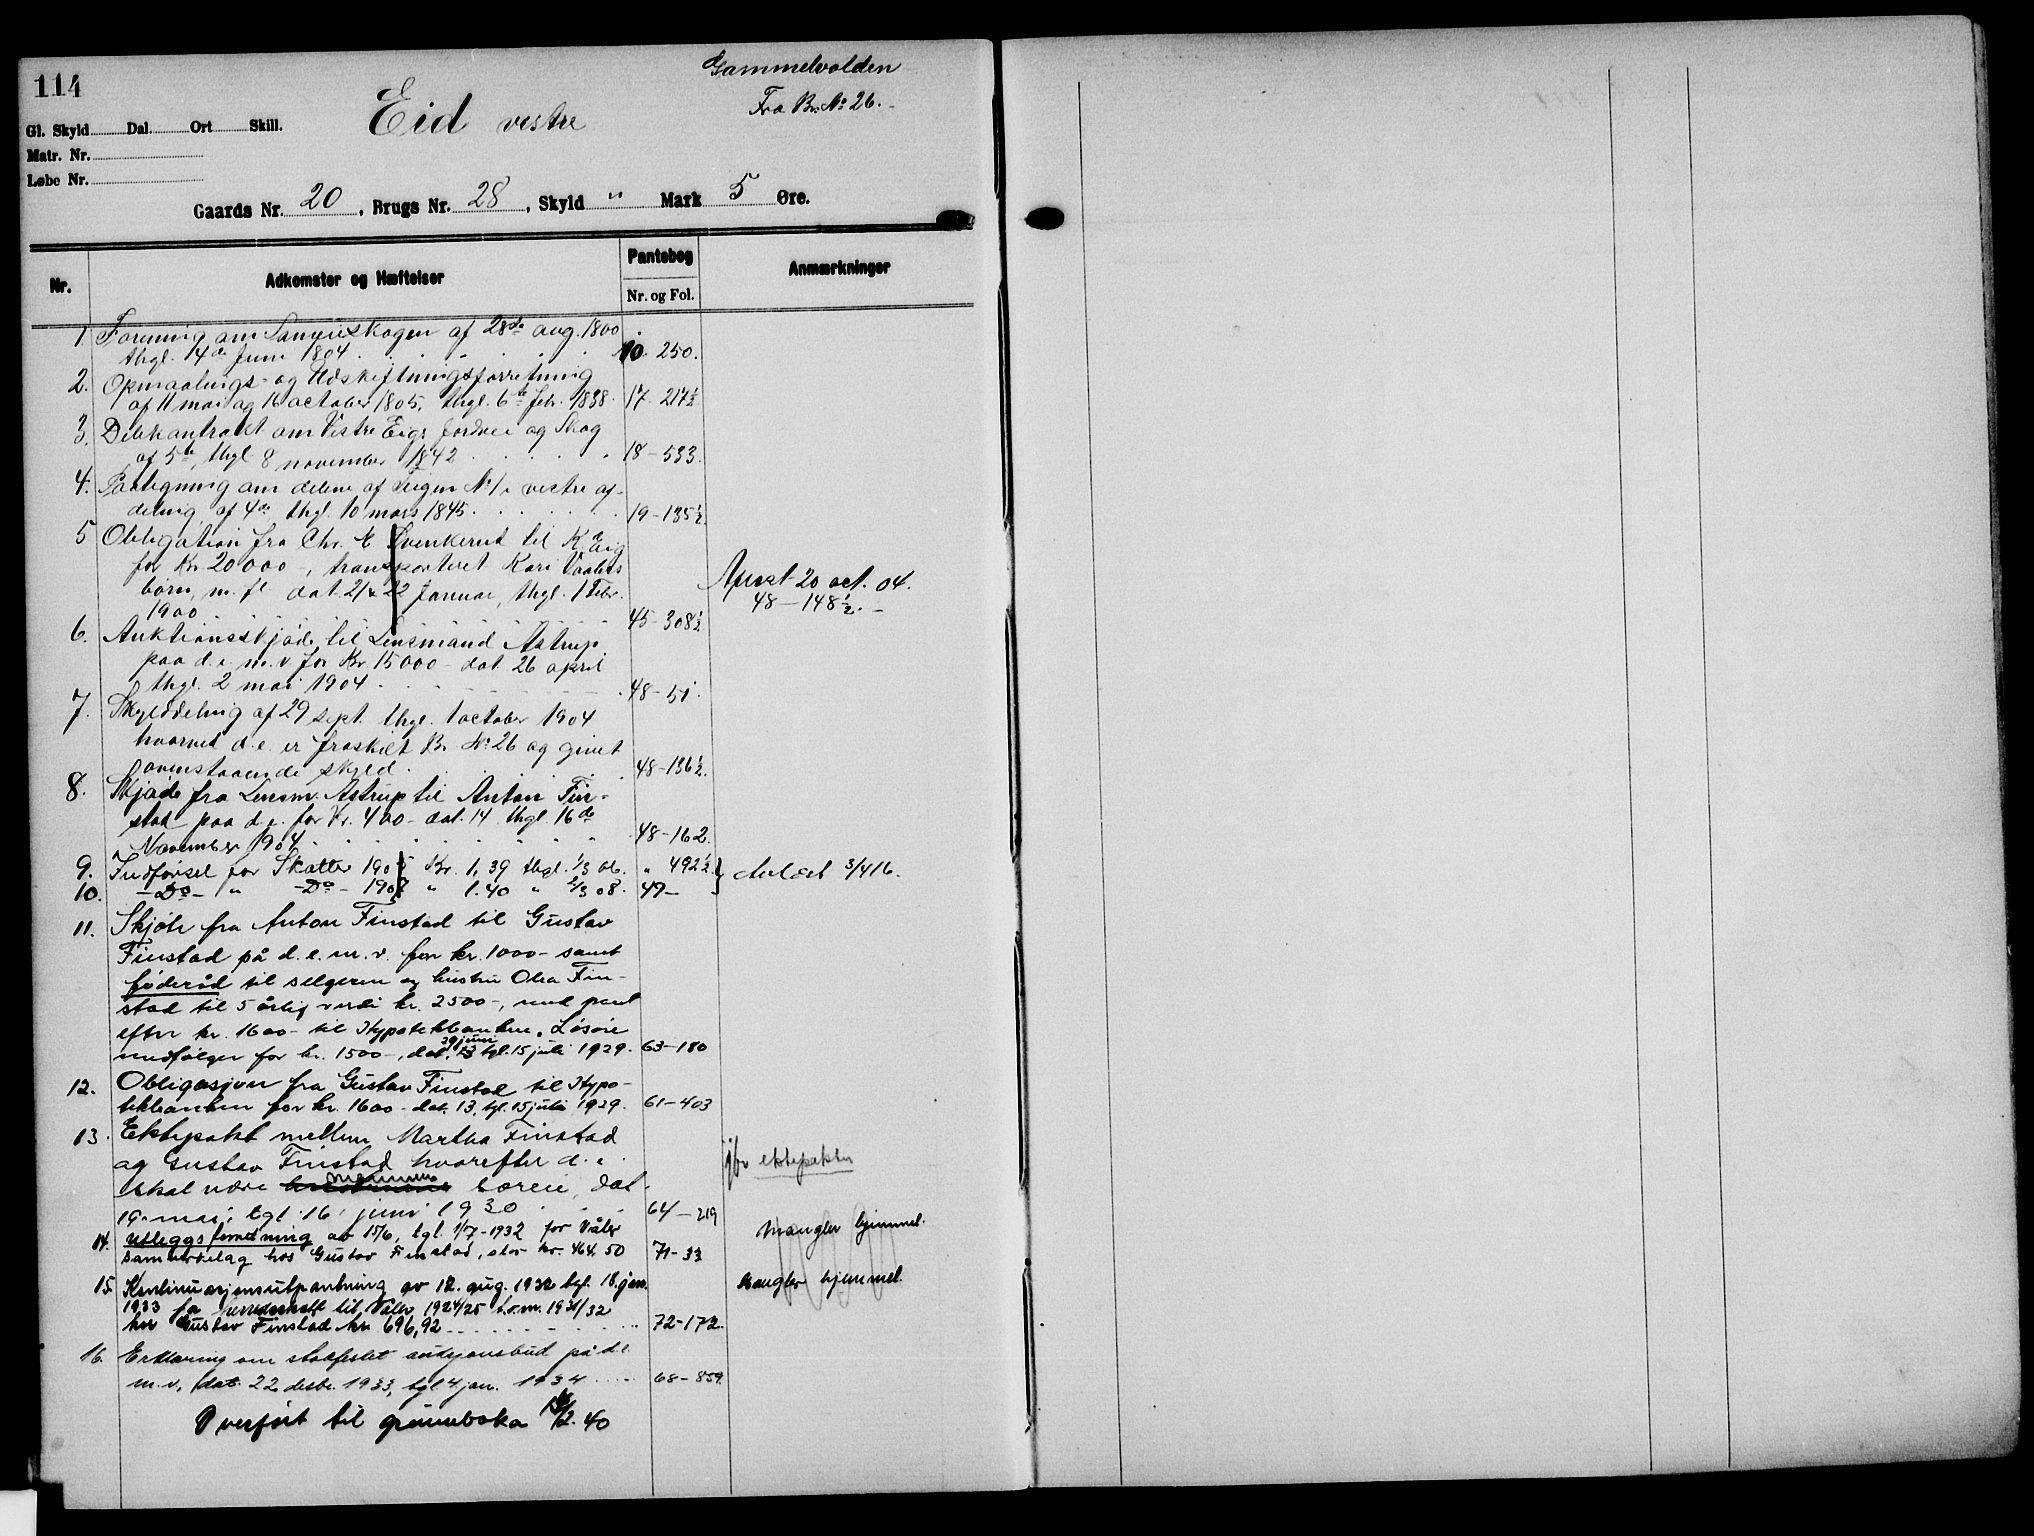 114
Gammelvolden
Fra Br. No 26.
Gl. Skyld Dal. Ort Skill.
Eid vestre
Matr. Nr.
Løbe Nr.
Gaards Nr. 20, Brugs Nr. 28, Skyld " Mark 5 Øre.
Nr. Adkomster og Hæftelser Pantebog Anmærkninger
Nr. og Fol.
1. Forening om Sameieskogen af 28de aug. 1800
thgl. 14de Juni 1804 10 250.
2. Opmaalings- og Udskiftningsforretning
af 11 mai og 16 october 1805, thgl. 6te febr. 1838. 17-217½
3. Delekontrakt om Vestre Eigs Jordvei og Skog
af 5te, thgl 8 november 1842 18-533.
4. Paategning om delene af Teigen No 1 i vestre af-
deling af 4de thgl. 10 mars 1845 19-135½
5 Obligation fra Chr. E Svenkerud til K. Eig
for Kr 20000-, transporteret Kari Vaalers
børn, m. fl. dat. 21 & 22 Januar, thgl. 1 Febr.
1900 45-308½
Aflyst 20 oct. 04.
48-148½.-
6. Auktionsskjøde til Lensmand Astrup
paa d. e. m. v. for Kr. 15000- dat. 26 april
thgl. 2 mai 1904 48-51.
7. Skylddeling af 29 sept. thgl. 1 october 1904
hvorved d. e. er fraskilt Br. No 26 og givet
ovenstaaende skyld. 48-136½.
8. Skjøde fra Lensm. Astrup til Anton Fin-
stad paa d. e. for Kr. 400- dat. 14 thgl. 16de
November 1904 48-162
9. Indførsel for Skatter 1905 Kr. 1,39 thgl. 1/3 06. " 492½
10. -Do- " -Do- 1907 " 1.40 " 2/3 08. 49-
Avlæst 3/4 16.
11. Skjøte fra Anton Finstad til Gustav
Finstad på d. e. m. v. for kr. 1000- samt
føderåd til selgeren og hustru Olea Fin-
stad til 5 årlig verdi kr. 2500-, med pant
efter kr. 1600- til Hypotekbanken. Løsøre
medfølger for kr. 1500-, dat. 29 juni tgl. 15 juli 1929. 63-180
12. Obligasjon fra Gustav Finstad til Hypo-
tekbanken for kr. 1600- dat. 13, tgl. 15 juli 1929. 61-403
13. Ektepakt mellem Martha Finstad
og Gustav Finstad hvorefter d. e.
skal være særeie, dat.
19. mai, tgl. 16. juni 1930 64-219
jfr ektepakten
14. Utleggsforretning av 15/6, tgl. 1/7-1932 for Våler
samvirkelag hos Gustav Finstad, stor kr. 464.50 71-33
Mangler hjemmel.
15. Kontinuasjonsutpantning av 12. aug. 1932 tgl. 18. jan.
1933 for til Våler 1924/25 t.o.m. 1931/32
hos Gustav Finstad kr. 696,92 72-172.
Mangler hjemmel.
16. Erklæring om stadfestet auksjonsbud på d. e.
m. v., dat. 22 desbr. 1933, tgl. 4 jan. 1934 68-859.
Overført til grunnboka 2.40